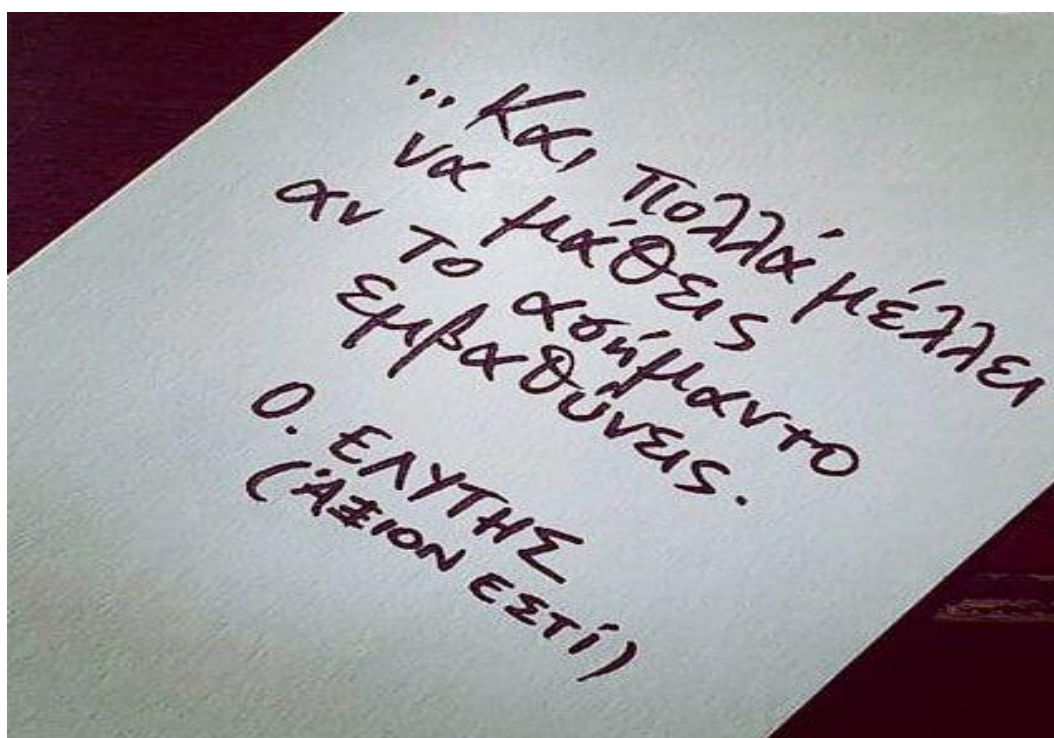 ... Και πολλά μέλλει
να μάθεις
αν το ασήμαντο
εμβαθύνεις.
Ο. ΕΛΥΤΗΣ
(ΆΞΙΟΝ ΕΣΤΊ)